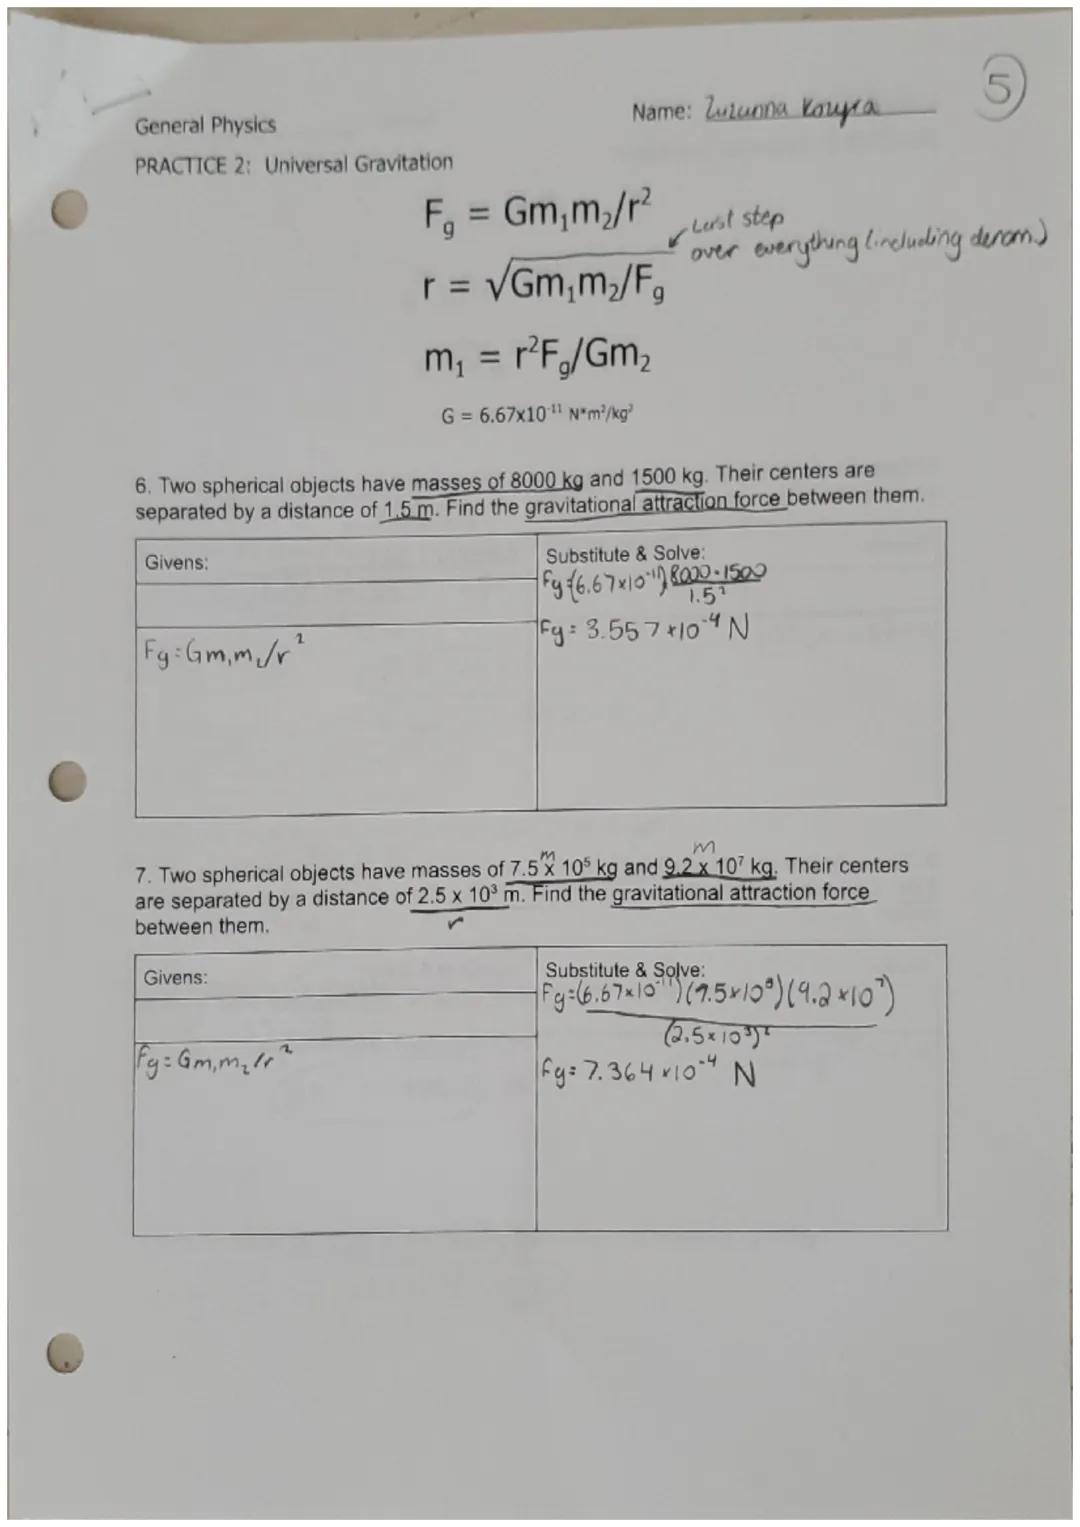 5
General Physics
Name: Zuzanna
PRACTICE 2: Universal Gravitation
Fg = Gm₁m₂/r²
Last step
over everything (including denom.)
r = √Gm₁m₂/Fg
m₁ = r²Fg/Gm₂
G = 6.67x10⁻¹¹ N*m²/kg²
6. Two spherical objects have masses of 8000 kg and 1500 kg. Their centers are
separated by a distance of 1.5 m. Find the gravitational attraction force between them.
Givens:
Fg=Gm₁m₂/r²
Substitute & Solve:
Fg=(6.67x10⁻¹¹) 8000·1500
1.5²
Fg= 3.557x10⁻⁴ N
m m
7. Two spherical objects have masses of 7.5 x 10⁵ kg and 9.2 x 10⁷ kg. Their centers
are separated by a distance of 2.5 x 10³ m. Find the gravitational attraction force
between them.
r
Givens:
Fg=Gm₁m₂/r²
Substitute & Solve:
Fg=(6.67x10⁻¹¹)(7.5x10⁵)(9.2x10⁷)
(2.5x10³)²
Fg= 7.364x10⁻⁴ N